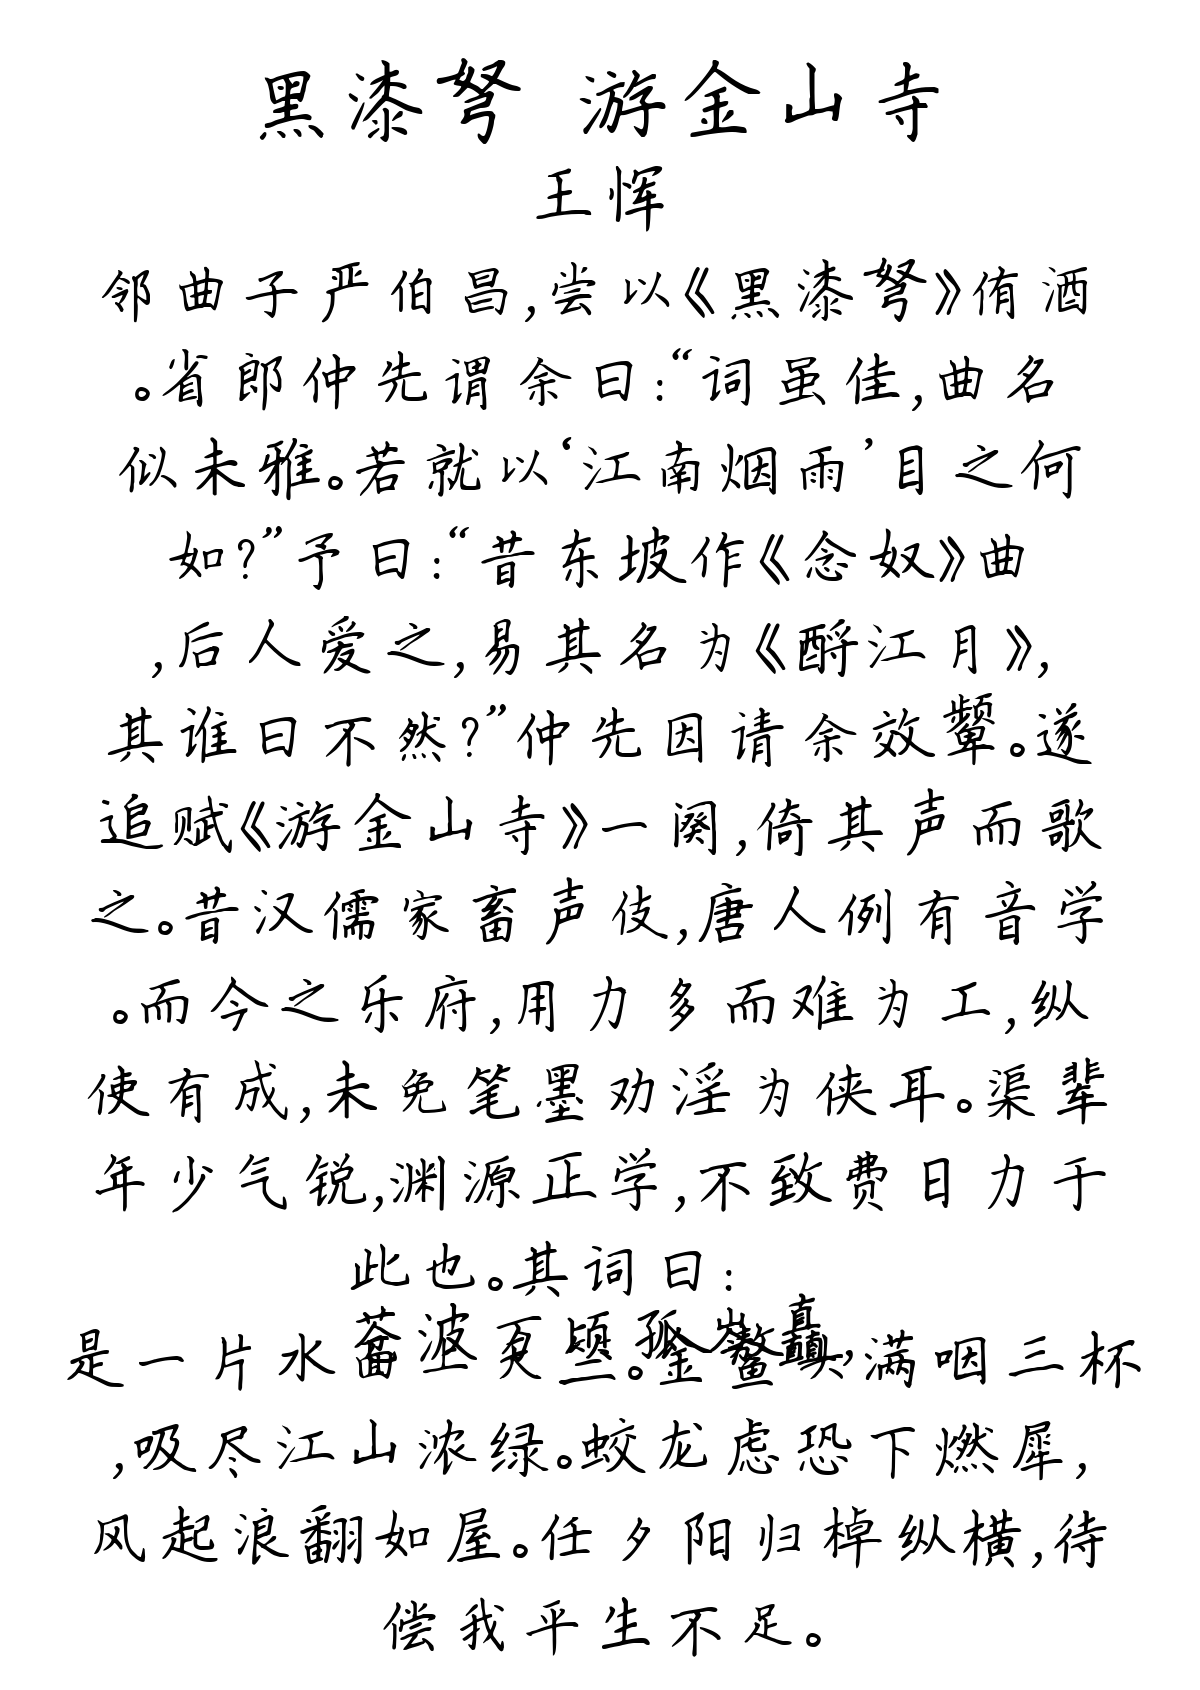 黑漆弩 游金山寺
王恽
邻曲子严伯昌,尝以《黑漆弩》侑酒
。省郎仲先谓余曰:“词虽佳,曲名
似未雅。若就以‘江南烟雨’目之何
如?”予曰:“昔东坡作《念奴》曲
,后人爱之,易其名为《酹江月》,
其谁曰不然?”仲先因请余效颦。遂
追赋《游金山寺》一阕,倚其声而歌
之。昔汉儒家畜声伎,唐人例有音学
。而今之乐府,用力多而难为工,纵
使有成,未免笔墨劝淫为侠耳。渠辈
年少气锐,渊源正学,不致费日力于
此也。其词曰:
苍波万顷孤岑矗,
是一片水面上天竺。金鳌头,满咽三杯
,吸尽江山浓绿。蛟龙虑恐下燃犀,
风起浪翻如屋。任夕阳归棹纵横,待
偿我平生不足。